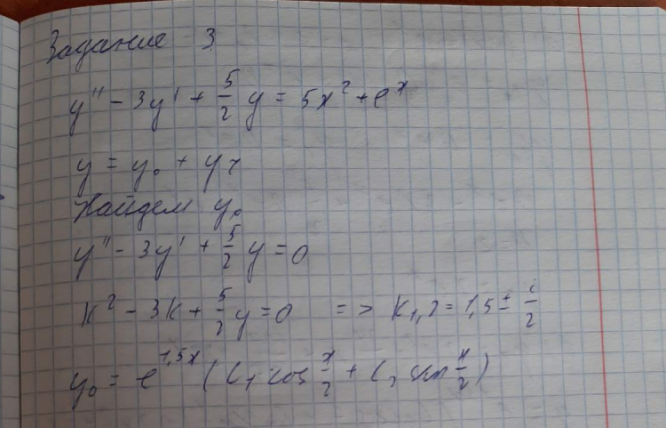 Задание 3
y'' - 3y' + 5/2 y = 5x² + eˣ
y = y₀ + yч
Найдем y₀
y'' - 3y' + 5/2 y = 0
k² - 3k + 5/2 y = 0 => k₁,₂ = 1,5 ± i/2
y₀ = e^1,5x (C₁ cos x/2 + C₂ sin x/2)